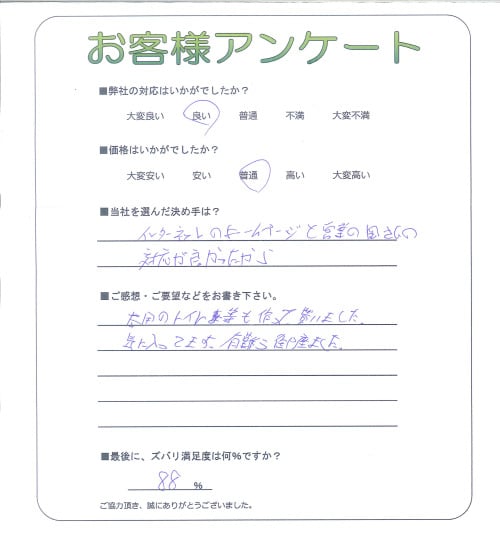 お客様アンケート
■弊社の対応はいかがでしたか？
大変良い 良い 普通 不満 大変不満
■価格はいかがでしたか？
大変安い 安い 普通 高い 大変高い
■当社を選んだ決め手は？
インターネットのホームページと営業の さんの
対応が良かったから
■ご感想・ご要望などをお書き下さい。
のトイレ も作って貰いました。
気に入ってます。有難う御座ました。
■最後に、ズバリ満足度は何%ですか？
88 %
ご協力頂き、誠にありがとうございました。